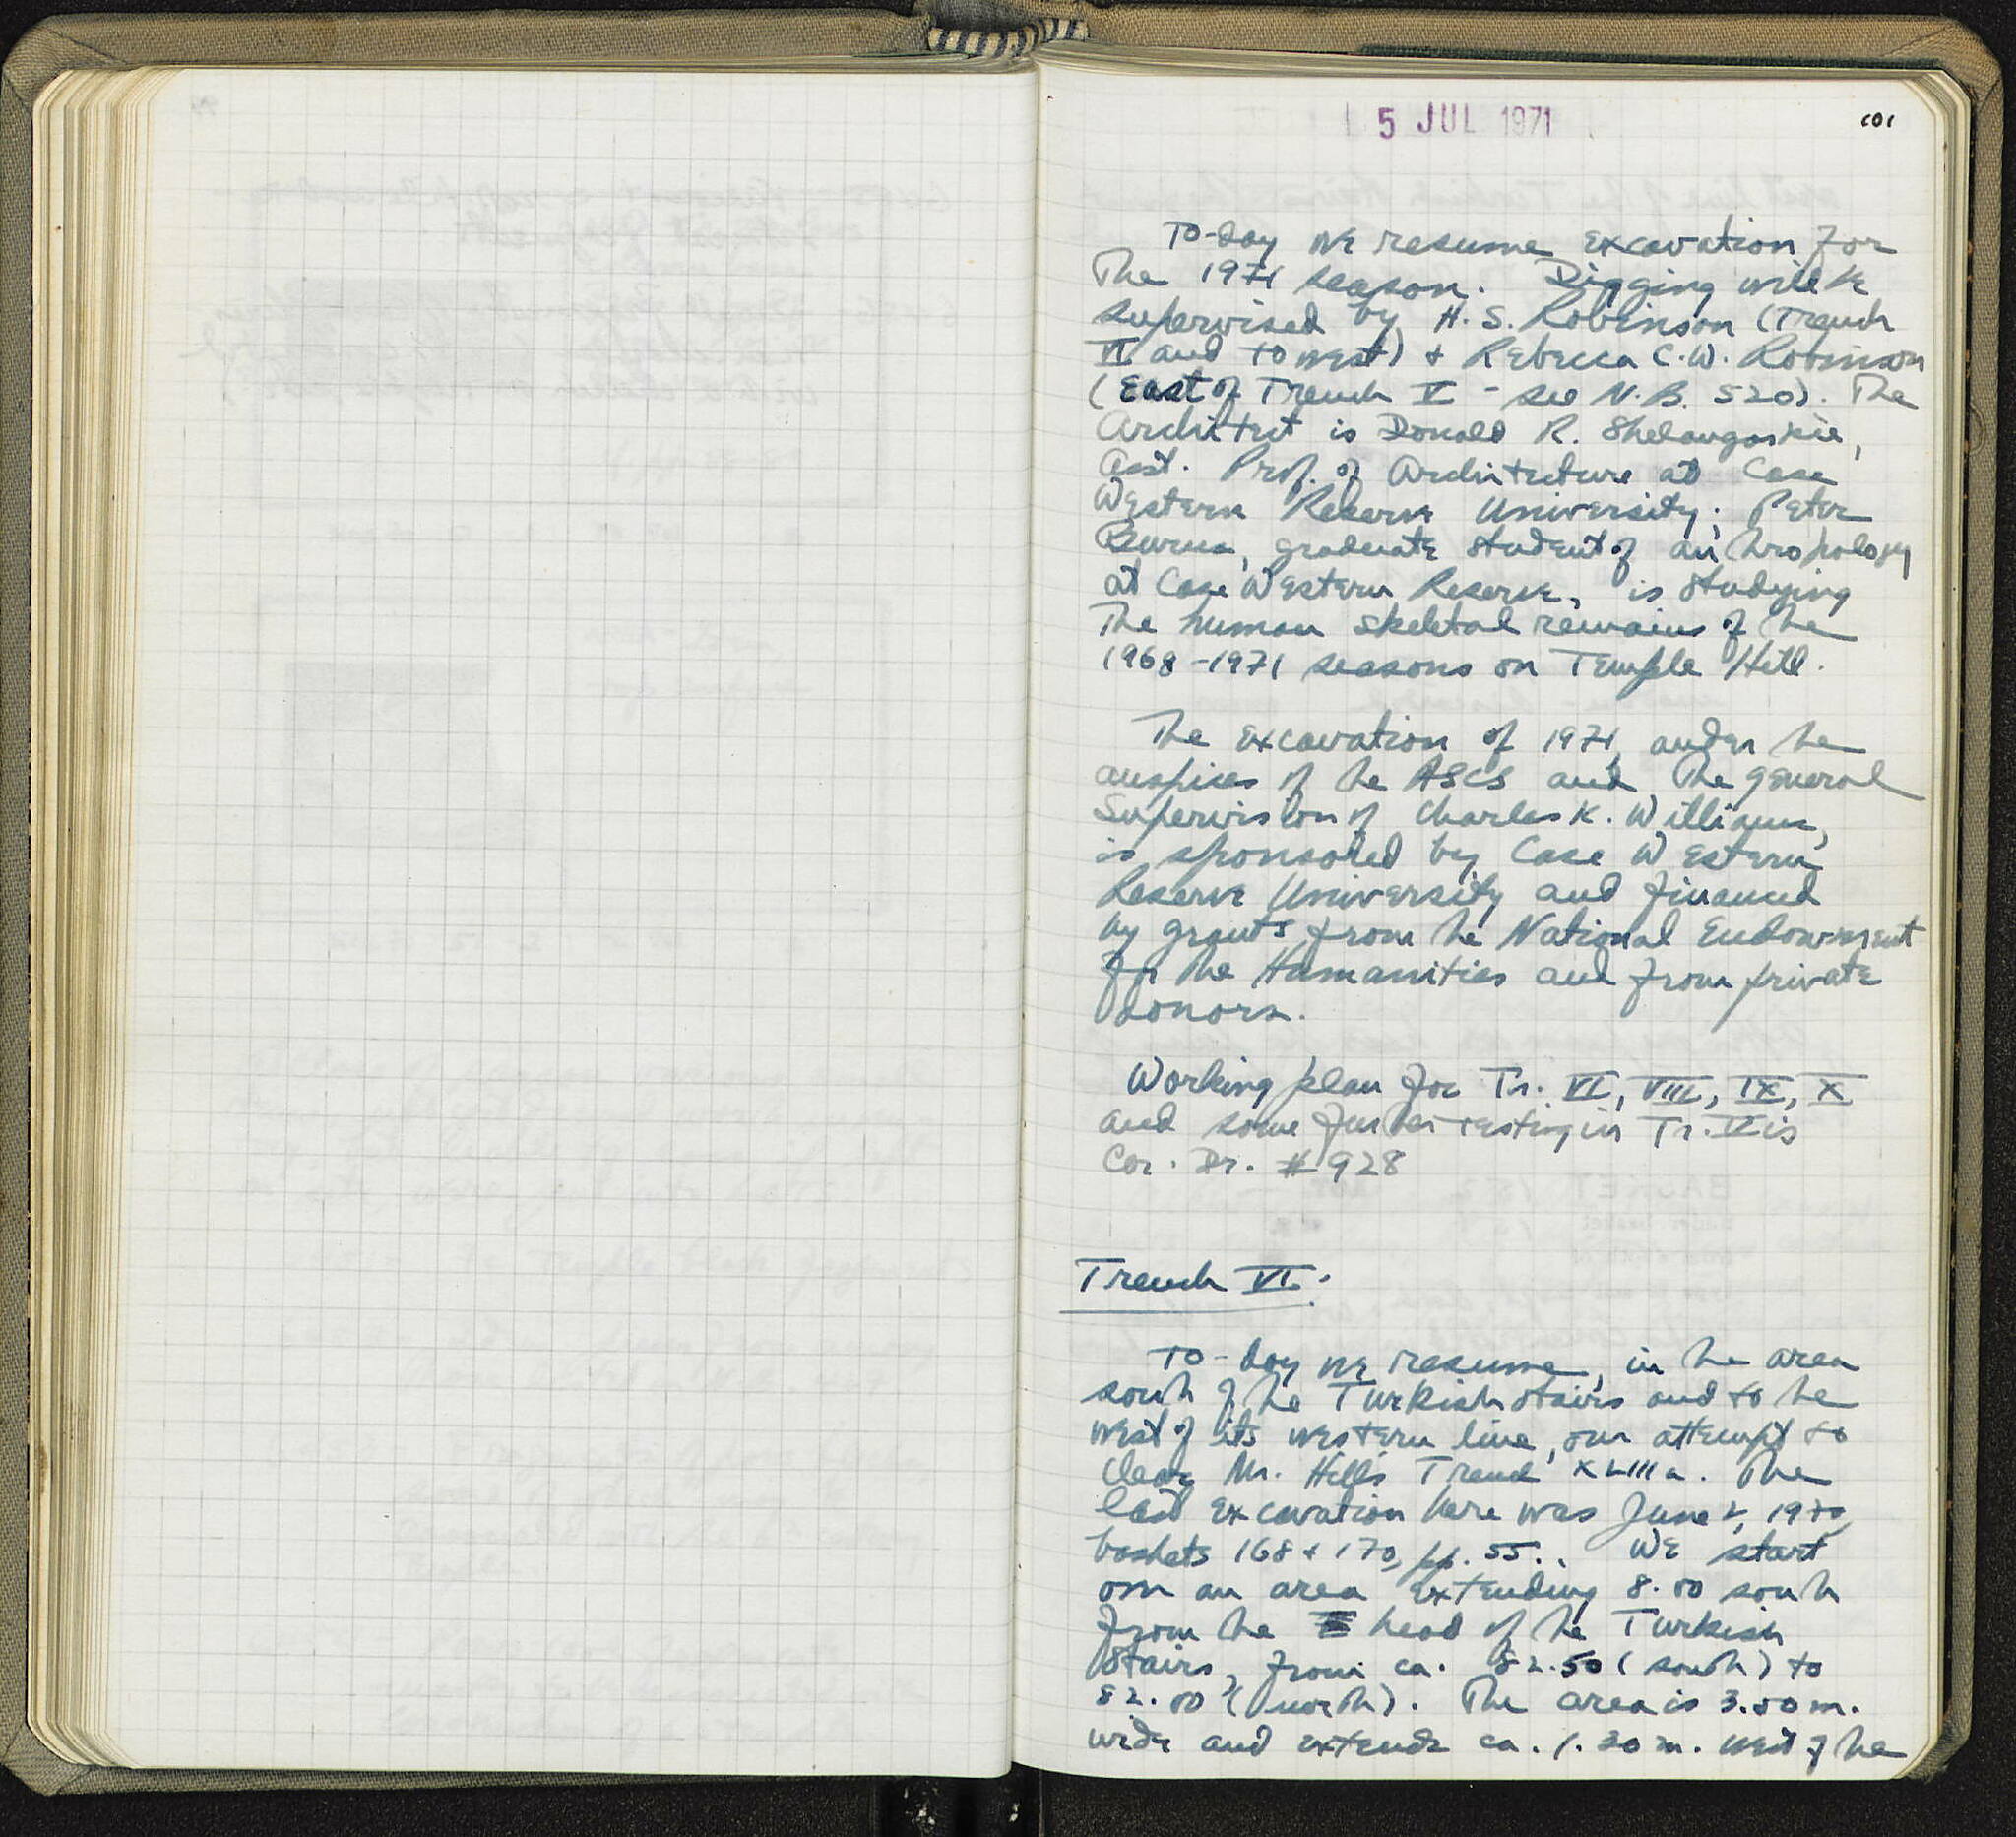 5 JUL 1971
101
To-day we resume excavation for
the 1971 season. Digging will be
supervised by H. S. Robinson (Trench
VI and to west) + Rebecca C. W. Robinson
(East of Trench V - see N.B. 520). The
Architect is Donald R. Shelangoskie,
Asst. Prof. of Architecture at Case
Western Reserve University; Peter
Burns, graduate student of anthropology
at Case Western Reserve, is studying
the human skeletal remains of the
1968-1971 seasons on Temple Hill.
The excavation of 1971, under the
auspices of the ASCS and the general
supervision of Charles K. Williams,
is sponsored by Case Western
Reserve University and financed
by grants from the National Endowment
for the Humanities and from private
donors.
Working plan for Tr. VI, VIII, IX, X
and some further testing in Tr. V is
Cor. Dr. #928
Trench VI:
To-day we resume, in the area
south of the Turkish stairs and to the
west of its western line, our attempt to
clear Mr. Hill's Trench XLIIIa. The
last excavation here was June 2, 1970,
baskets 168 + 170, pp. 55.. We start
on an area extending 8.00 south
from the head of the Turkish
Stairs, from ca. 82.50 (south) to
82.00 (north). The area is 3.50 m.
wide and extends ca. 1.30 m. west of the